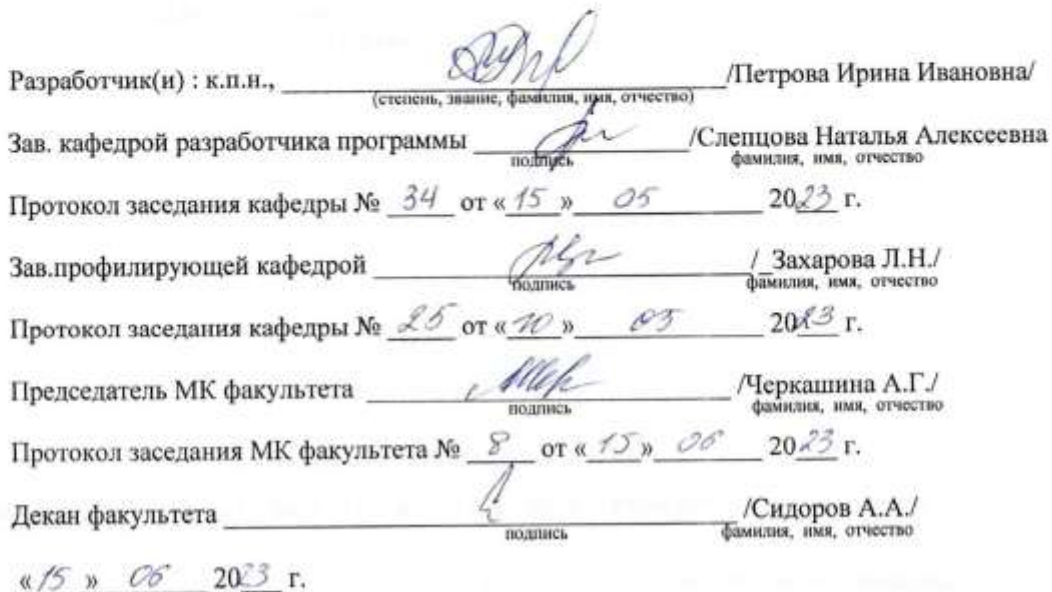 Разработчик(и) : к.п.н., /Петрова Ирина Ивановна/
(степень, звание, фамилия, имя, отчество)
Зав. кафедрой разработчика программы /Слепцова Наталья Алексеевна
подпись фамилия, имя, отчество
Протокол заседания кафедры № 34 от « 15 » 05 2023 г.
Зав.профилирующей кафедрой /_Захарова Л.Н./
подпись фамилия, имя, отчество
Протокол заседания кафедры № 25 от « » 05 2023 г.
Председатель МК факультета /Черкашина А.Г./
подпись фамилия, имя, отчество
Протокол заседания МК факультета № 8 от « 15 » 06 2023 г.
Декан факультета /Сидоров А.А./
подпись фамилия, имя, отчество
« 15 » 06 2023 г.